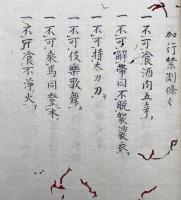 加行禁制條〻
一不可食酒肉五辛
一不可解帶同不脱袈裟衣
一不可持太刀刀
一不可伎樂歌舞
一不可乘馬同登木
一不可食不淨火